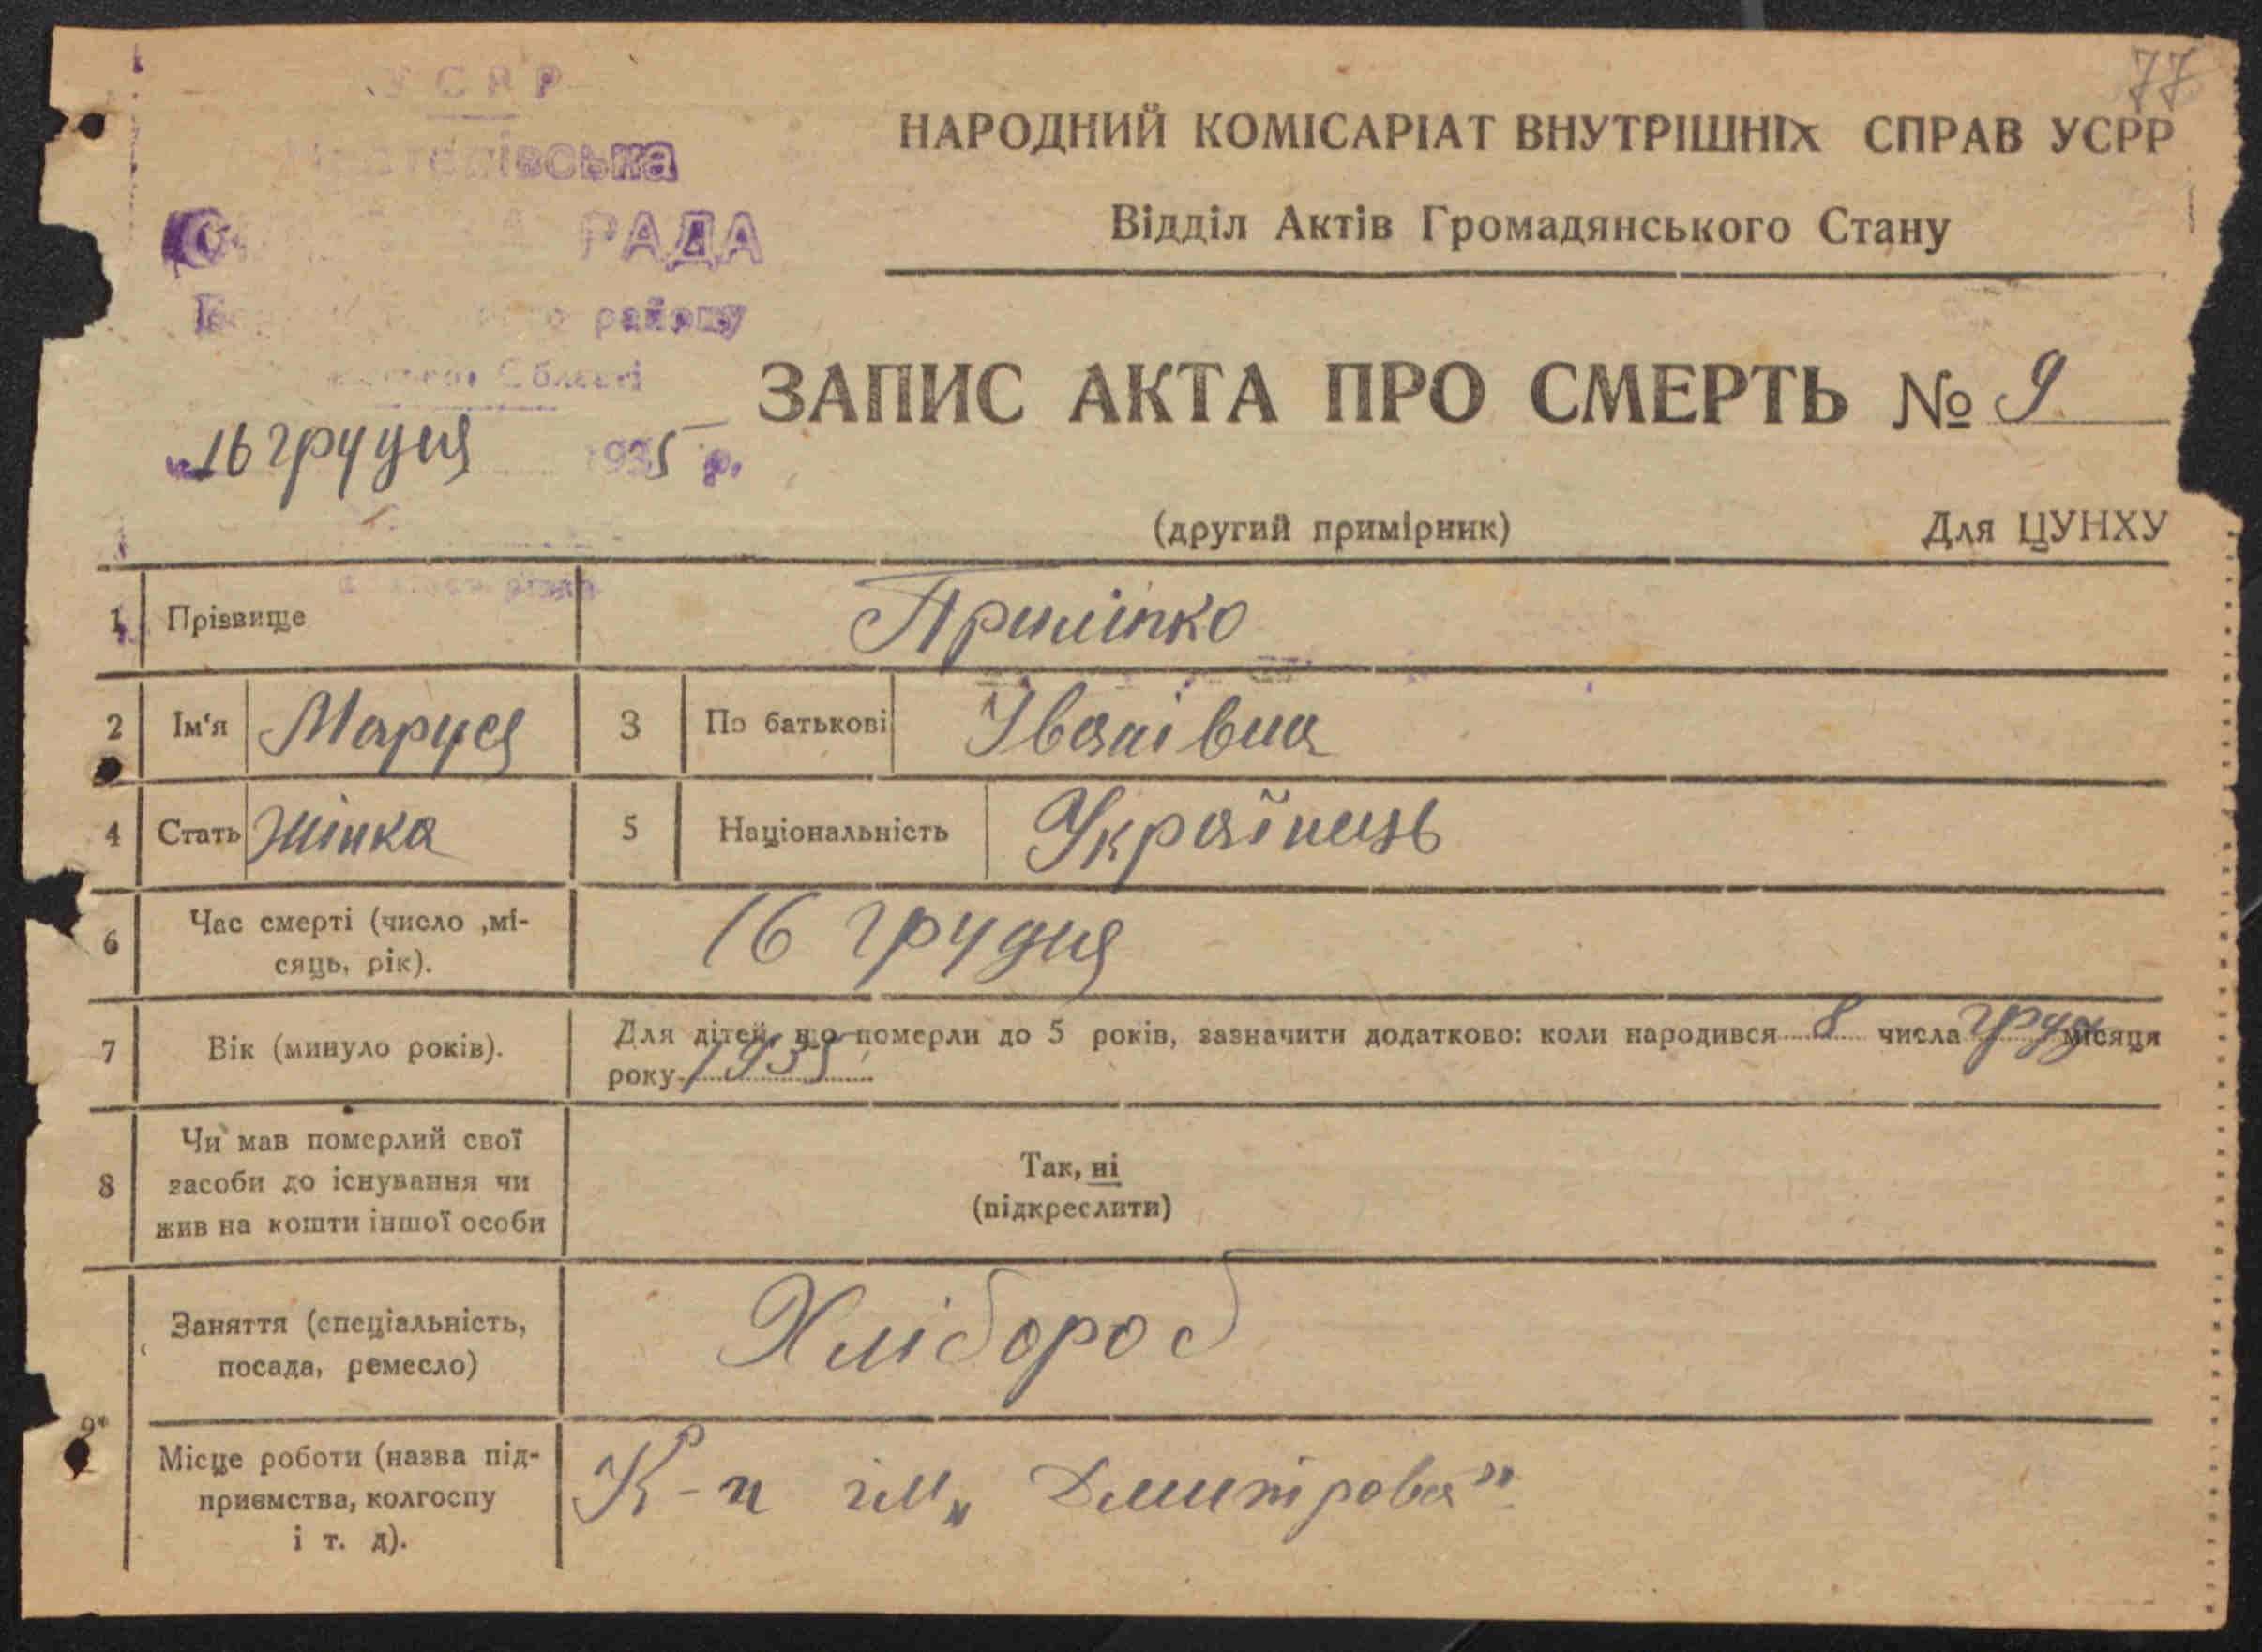 77
УСРР
РАДА
району
Області
НАРОДНИЙ КОМІСАРІАТ ВНУТРІШНІХ СПРАВ УСРР
Відділ Актів Громадянського Стану
ЗАПИС АКТА ПРО СМЕРТЬ № 9
16 грудня 1935 р.
(другий примірник) Для ЦУНХУ
1 Прізвище Приліпко
2 Ім'я Маруся 3 По батькові Іванівна
4 Стать жінка 5 Національність Українець
6 Час смерті (число ,мі-
сяць, рік). 16 грудня
7 Вік (минуло років). Для дітей, що померли до 5 років, зазначити додатково: коли народився 8 числа груд місяця
року 1935
8 Чи мав померлий свої
засоби до існування чи
жив на кошти іншої особи
Так, ні
(підкреслити)
9* Заняття (спеціальність,
посада, ремесло) Хлібороб
Місце роботи (назва під-
приємства, колгоспу
і т. д). К-п ім „Дмитрова"